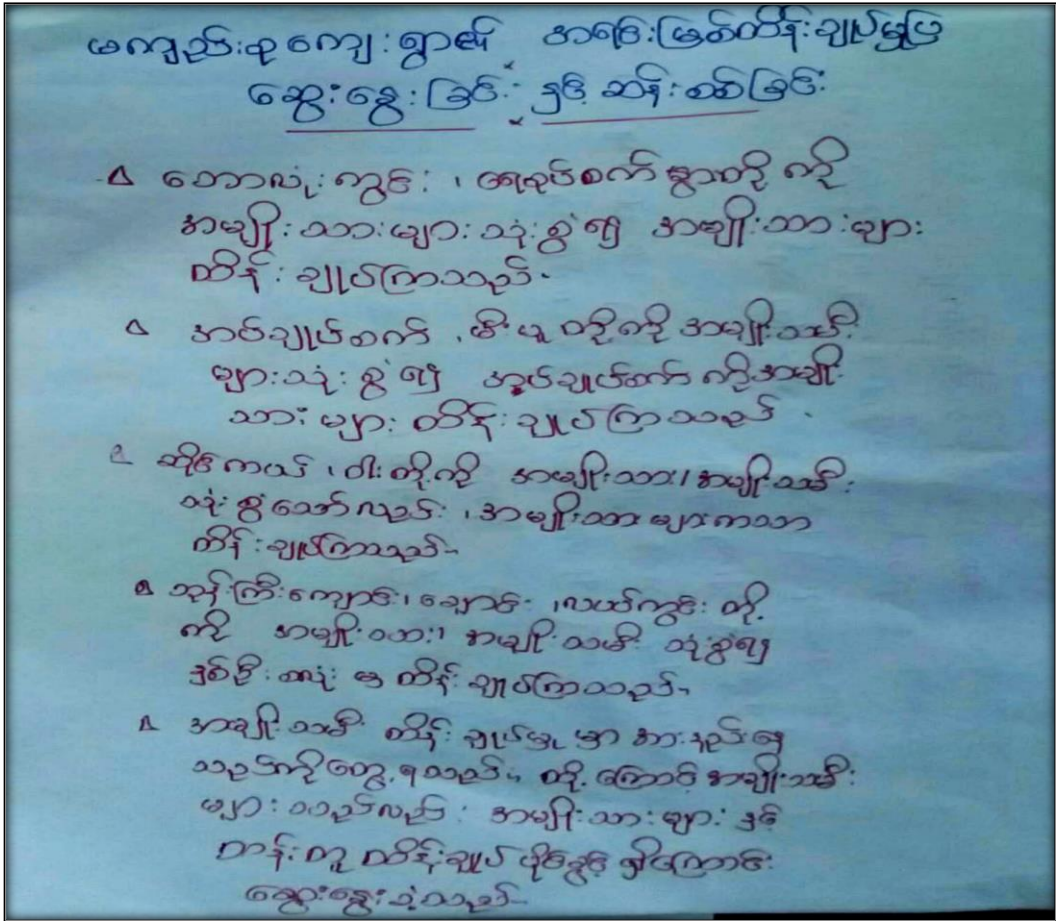 မကျည်းစုကျေးရွာ၏ အရင်းမြစ်ထိန်းချုပ်မှုပြ
ဆွေးနွေးခြင်း နှင့် ဆန်းစစ်ခြင်း
ဘောလုံးကွင်း ၊ ရေစုပ်စက် စွာတို့ ကို
အမျိုးသားများ သုံးစွဲ၍ အမျိုးသားများ
ထိန်းချုပ်ကြသည်။
အပ်ချုပ်စက် ၊ မီးပူ တို့ကို အမျိုးသမီး
များသုံးစွဲ၍ အပ်ချုပ်စက် ကိုအမျိုး
သားများ ထိန်းချုပ်ကြသည် ။
ဆိုင်ကယ် ၊ ဝါးတို့ကို အမျိုးသား၊ အမျိုးသမီး
သုံးစွဲသော်လည်း ၊ အမျိုးသားများကသာ
ထိန်းချုပ်ကြသည်။
ဘုန်းကြီးကျောင်း၊ ချောင်း ၊ လယ်ကွင်း တို့
ကို အမျိုးသား၊ အမျိုးသမီး သုံးစွဲ၍
နှစ်ဦးစလုံး မှ ထိန်းချုပ်ကြသည်။
အမျိုးသမီး ထိန်းချုပ်မှု မှာ အားနည်းနေ
သည်ကိုတွေ့ရသည်။ ထို့ကြောင့် အမျိုးသမီး
များသည်လည်း အမျိုးသားများ နှင့်
တန်းတူ ထိန်းချုပ် ပိုင်ခွင့် ရှိကြောင်း
ဆွေးနွေးခဲ့သည်။